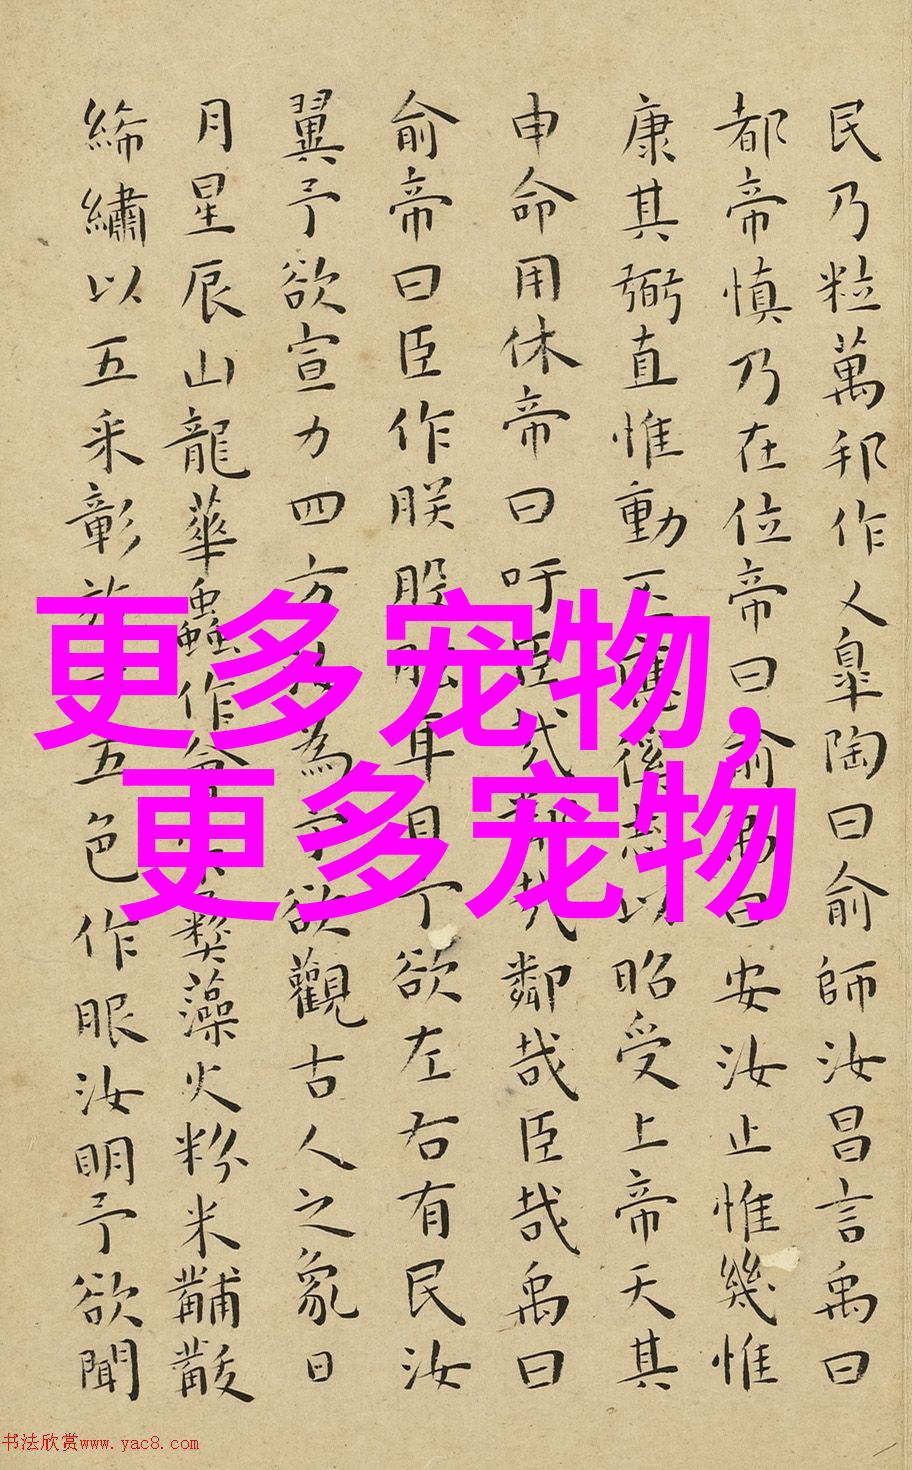 民乃粒萬邦作乂皐陶曰俞師汝昌言禹曰
都帝慎乃在位帝曰俞禹曰安汝止惟幾惟
康其弼直惟動丕應徯志以昭受上帝天其
申命用休帝曰吁臣哉鄰哉鄰哉臣哉禹曰
俞帝曰臣作朕股肱耳目予欲左右有民汝
翼予欲宣力四方汝為予欲觀古人之象日
月星辰山龍華蟲作會宗彝藻火粉米黼黻
絺繡以五采彰施于五色作服汝明予欲聞
更多宠物,
更多宠物
书法欣赏www.yac8.com